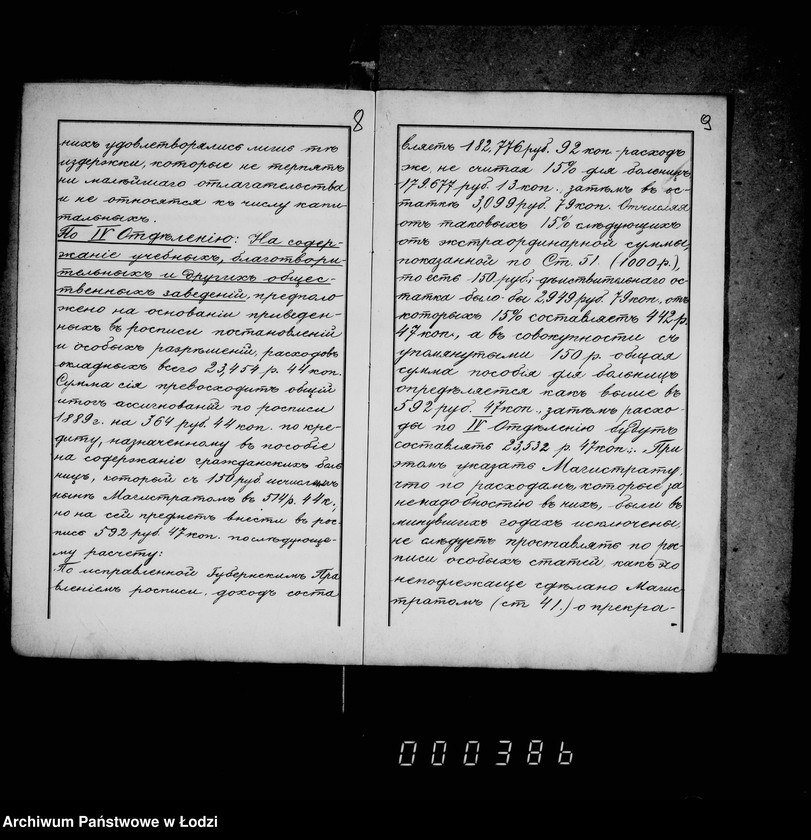 8
нихъ удовлетворялись лишь тѣ
издержки, которые не терпятъ
ни малѣйшаго отлагательства
и не относятся къ числу капи
тальныхъ.
По IV Отдѣленію: На содер-
жаніе учебныхъ, благотвори-
тельныхъ и другихъ общес-
твенныхъ заведеній, предполо-
жено на основаніи приведен-
ныхъ въ росписи постановленій
и особыхъ разрѣшеній, расходовъ
окладныхъ всего 23,454 р. 44 коп.
Сумма сія превосходитъ общій
итогъ ассигнованій по росписи
1889 г. на 364 руб. 44 коп. по кре-
диту, назначенному въ пособіе
на содержаніе гражданскихъ боль
ницъ, который съ 150 руб. исчисленъ
нынѣ Магистратомъ въ 514 р. 44 к.,
но на сей предметъ внести въ рос-
пись 592 руб. 47 коп. послѣдующе-
му расчету:
По исправленной Губернскимъ Пра
вленіемъ росписи, доходъ соста
9
вляетъ 182,776 руб. 92 коп.-расходъ
же, не считая 15% для больницъ
179677 руб. 13 коп. затѣмъ въ ос-
таткѣ 3,099 руб. 79 коп. Отчисляя
отъ таковыхъ 15% слѣдующихъ
отъ экстраординарной суммы,
показанной по Ст. 51. (1000 р.),
то есть 150 руб; дѣйствительнаго ос-
татка было бы 2,949 руб. 79 коп., отъ
которыхъ 15% составляетъ 442 р.
47 коп., а въ совокупности съ
упомянутыми 150 р. общая
сумма пособія для больницъ
опредѣляется какъ выше въ
592 руб. 47 коп., затѣмъ расхо-
ды по IV Отдѣленію будутъ
составлять 23,532 р. 47 коп.. При
этомъ указать Магистрату,
что по расходамъ, которые за
ненадобностію въ нихъ, были въ
минувшихъ годахъ исключены
не слѣдуетъ проставлять по рос-
писи особыхъ статей, какъ то
неподлежаще сдѣлано Магис
тратомъ (ст 41.) о прекра-
000386
Archiwum Państwowe w Łodzi